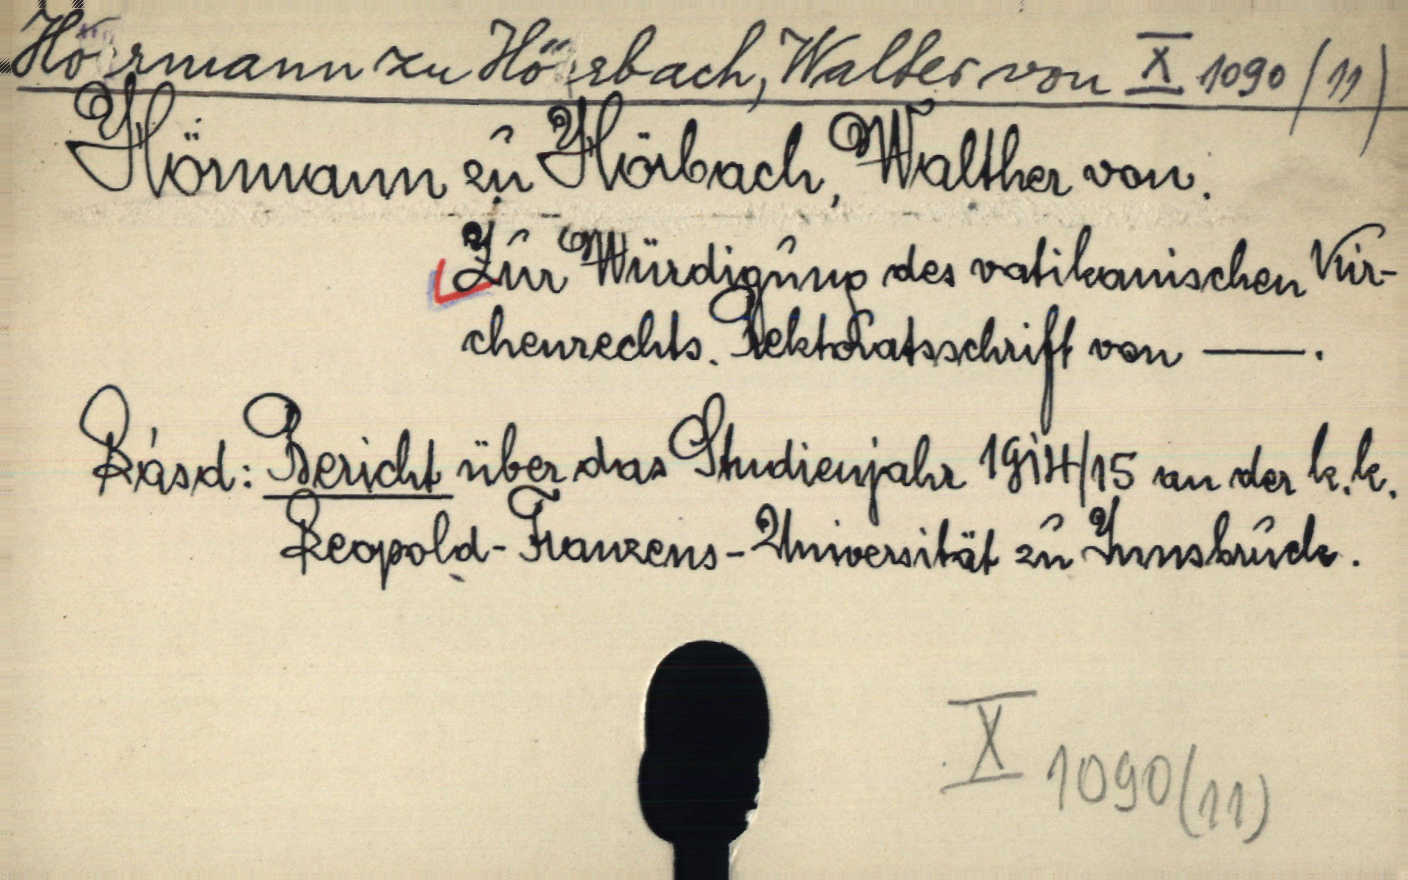 Hörmann zu Hörbach, Walter von X 1090 (11)
Hörmann zu Hörbach, Walther von.
Zur Würdigung des vatikanischen Kir-
chenrechts. Rektoratsschrift von —.
Rásd: Bericht über das Studienjahr 1914/15 an der k. k.
Leopold-Franzens-Universität zu Innsbruck.
X 1090 (11)